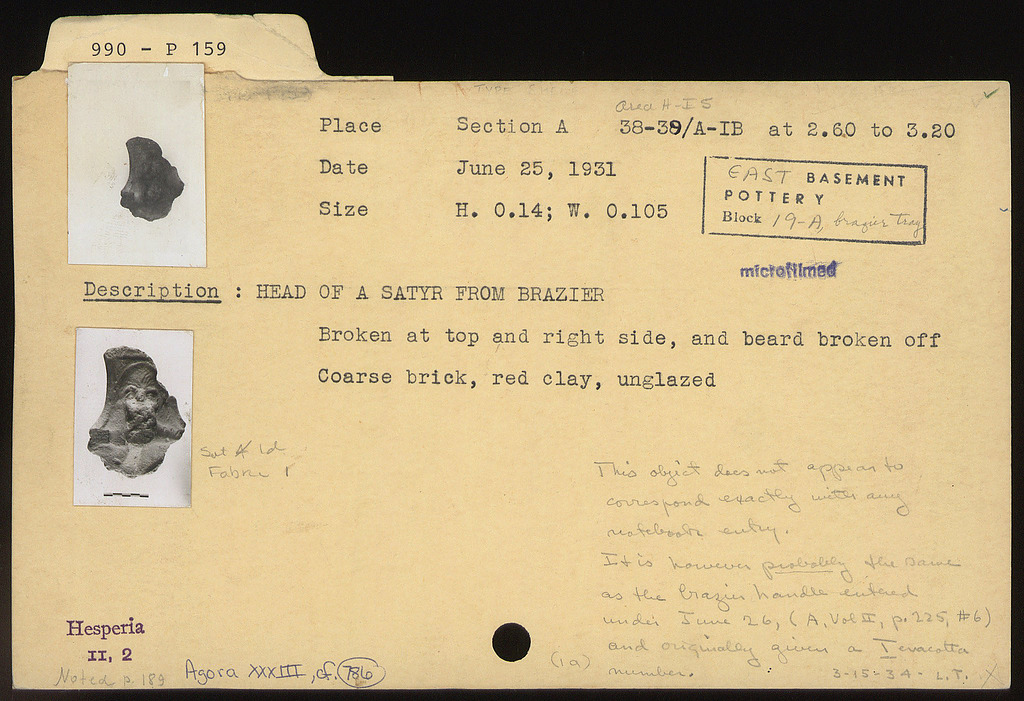 990 - P 159
A-TYPE
Area H-I 5
Place Section A 38-39/A-IB at 2.60 to 3.20
Date June 25, 1931
Size H. 0.14; W. 0.105
EAST BASEMENT
POTTERY
Block 19-A, brazier Tray
microfilmed
Description : HEAD OF A SATYR FROM BRAZIER
Broken at top and right side, and beard broken off
Coarse brick, red clay, unglazed
Sat A 1d
Fabric 1
This object does not appear to
correspond exactly with any
notebook entry.
It is however probably the same
as the brazier handle entered
under June 26, (A, Vol II, p. 225, #6)
and originally given a Terracotta
number. 3-15-34 - L.T. X
(1a)
Hesperia
II, 2
Noted p. 189
Agora XXXIII, cf. 786